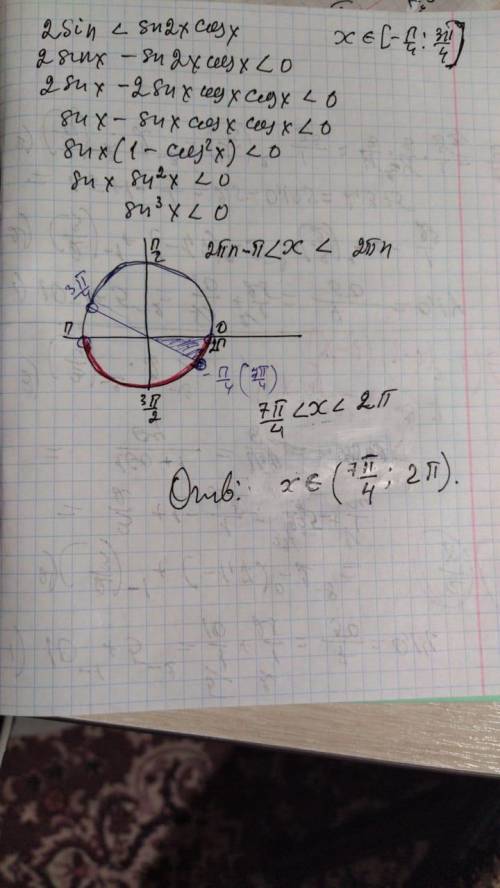 2sin < sin2x cosx    x ∈ [-π/4; 3π/4]
2sinx - sin2x cosx < 0
2sinx - 2sinx cosx cosx < 0
sinx - sinx cosx cosx < 0
sinx (1 - cos²x) < 0
sinx sin²x < 0
sin³x < 0
π/2
2πn-π < x < 2πn
3π/4
π
0
2π
-π/4 (7π/4)
3π/2
7π/4 < x < 2π
Отв: x ∈ (7π/4; 2π).